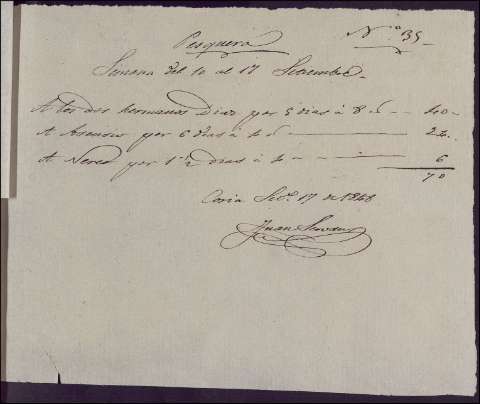 Nº 35
Pesquera
Semana del 10 al 17 Setiembre
A los dos hermanos Diaz por 5 dias á 8 r — 40
A Asensio por 6 dias á 4 r — 24
A Nereo por 1 1/2 dias á 4 — 6
70
Coria Seᵉ 17 de 1848
Juan